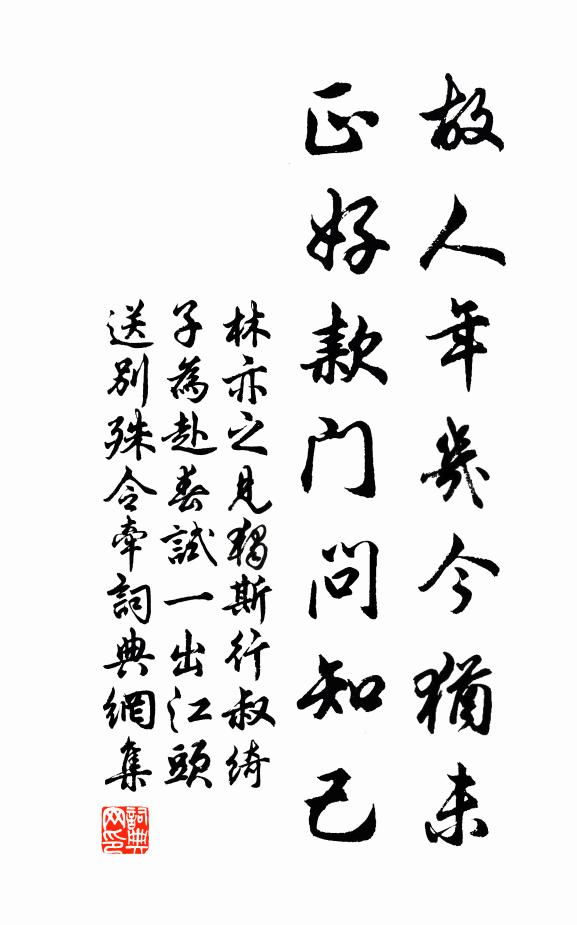 故人年幾今猶未
正好款門問知己
林亦之見獨斯行叔綺
子為赴春試一出江頭
送別殊令牽詞典網集
詞典網印